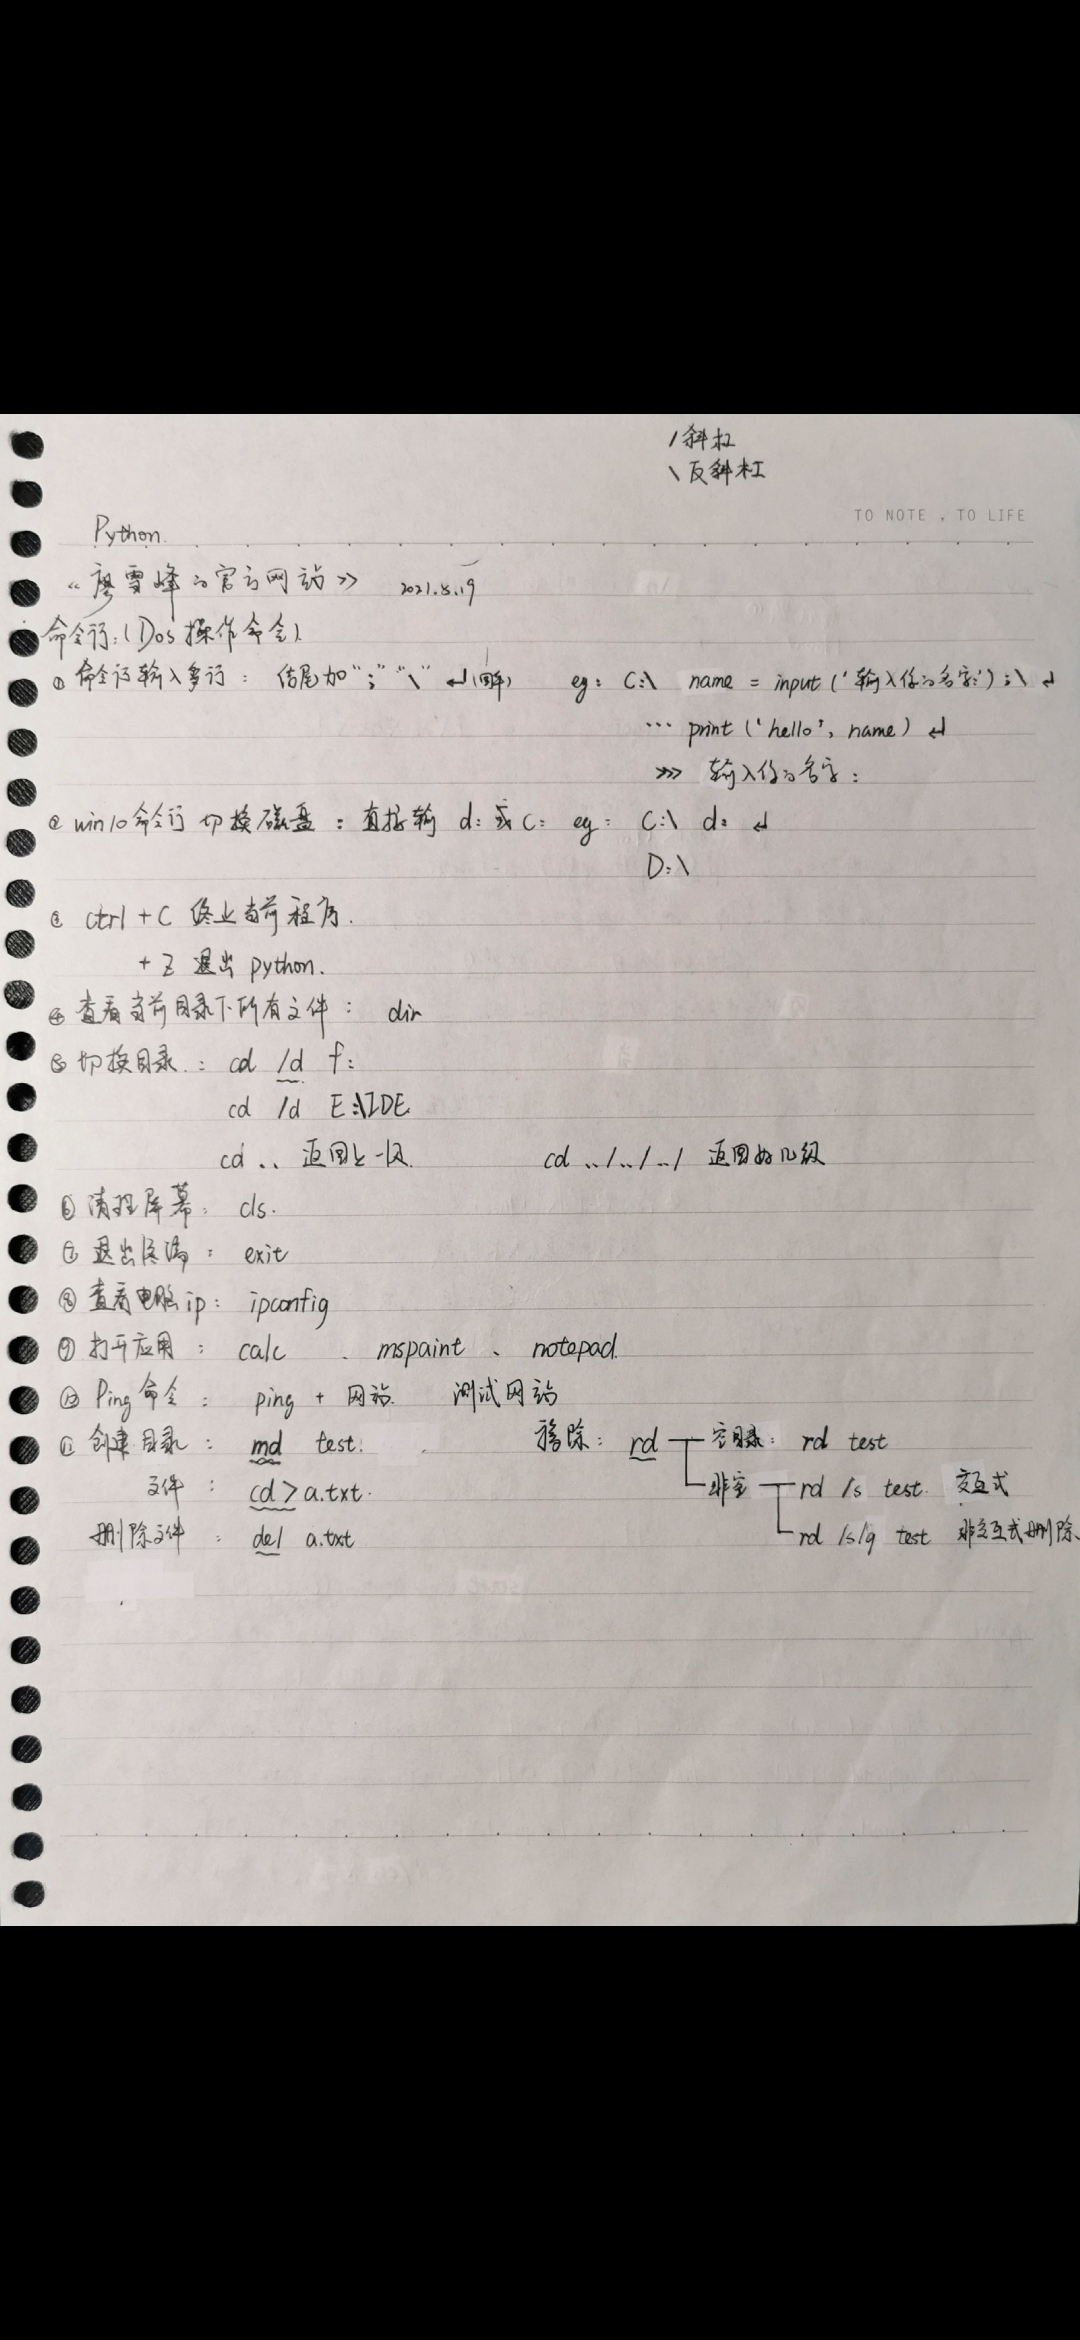 /斜杠
\反斜杠
TO NOTE , TO LIFE
Python.
《廖雪峰的官方网站》 2021.8.19
命令行:(Dos操作命令).
① 命令行输入多行: 结尾加";" "\" ↵(回车) eg: C:\ name = input('输入你的名字:');\ ↵
... print('hello', name) ↵
>>> 输入你的名字:
② win10命令行 切换磁盘: 直接输 d: 或 C: eg: C:\ d: ↵
D:\
③ ctrl + C 终止当前程序.
+ Z 退出 python.
④ 查看当前目录下所有文件: dir
⑤ 切换目录.: cd /d f:
cd /d E:\IDE
cd .. 返回上一级. cd ../../../ 返回好几级
⑥ 清理屏幕: cls.
⑦ 退出终端: exit
⑧ 查看电脑ip: ipconfig
⑨ 打开应用: calc 、 mspaint 、 notepad.
⑩ Ping命令: ping + 网站. 测试网站
⑪ 创建目录: md test. 移除: rd 空目录: rd test
文件: cd>a.txt. 非空 rd /s test. 交互式
删除文件: del a.txt rd /s/q test 非交互式删除.